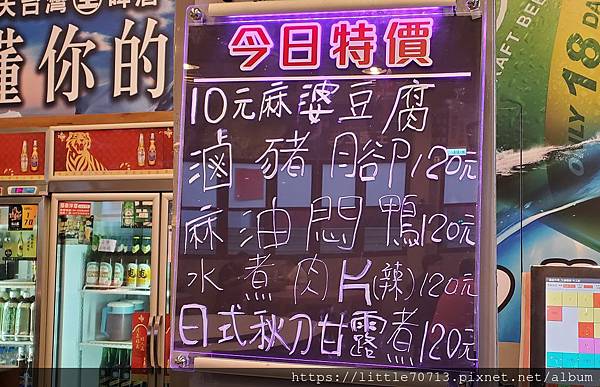 天台灣 生 啤酒
懂你的
今日特價
10元麻婆豆腐
滷豬腳120元
麻油悶鴨120元
水煮肉片(辣)120元
日式秋刀甘露煮120元
CRAFT BEER
18 DAY
ONLY
https://little70713.pixnet.net/album